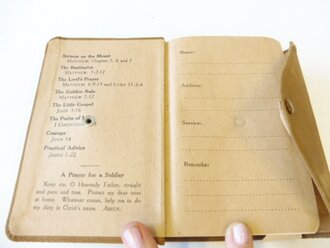 Sermon on the Mount
Matthew, Chapters 5, 6 and 7
The Beatitudes
Matthew, 5:3-12
The Lord's Prayer
Matthew, 6:9-13 and Luke 11:2-4
The Golden Rule
Matthew 7:12
The Little Gospel
John 3:16
The Psalm of
I Corinthians
Courage
John 14
Practical Advice
James 1:22
A Prayer for a Soldier
Keep me, O Heavenly Father, straight
and pure and true. Protect my dear ones
at home. Whatever comes, help me to do
my duty in Christ's name. Amen.
Name:
Address:
Service:
Remarks: